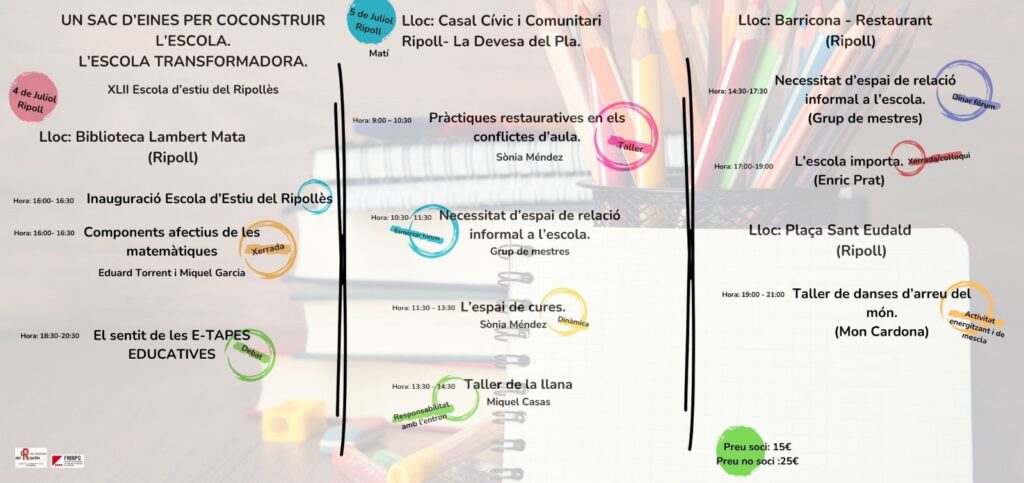 UN SAC D'EINES PER COCONSTRUIR
L'ESCOLA.
L'ESCOLA TRANSFORMADORA.
XLII Escola d'estiu del Ripollès
4 de Juliol
Ripoll
Lloc: Biblioteca Lambert Mata
(Ripoll)
Hora: 16:00- 16:30
Inauguració Escola d'Estiu del Ripollès
Hora: 16:00- 16:30
Components afectius de les
matemàtiques
Xerrada
Eduard Torrent i Miquel Garcia
Hora: 18:30-20:30
El sentit de les E-TAPES
EDUCATIVES
Debat
FMRPC
5 de Juliol
Ripoll
Matí
Lloc: Casal Cívic i Comunitari
Ripoll- La Devesa del Pla.
Hora: 9:00 – 10:30
Pràctiques restauratives en els
conflictes d'aula.
Taller
Sònia Méndez
Hora: 10:30- 11:30
Necessitat d'espai de relació
informal a l'escola.
Esmorzar fòrum
Grup de mestres
Hora: 11:30 – 13:30
L'espai de cures.
Sònia Méndez
Dinàmica
Hora: 13:30 – 14:30
Taller de la llana
Miquel Casas
Responsabilitat
amb l'entron
Lloc: Barricona - Restaurant
(Ripoll)
Hora: 14:30-17:30
Necessitat d'espai de relació
informal a l'escola.
(Grup de mestres)
Dinar fòrum
Hora: 17:00-19:00
L'escola importa.
(Enric Prat)
Xerrada/col·loqui
Lloc: Plaça Sant Eudald
(Ripoll)
Hora: 19:00 - 21:00
Taller de danses d'arreu del
món.
(Mon Cardona)
Activitat
energitzant i de
mescla
Preu soci: 15€
Preu no soci :25€